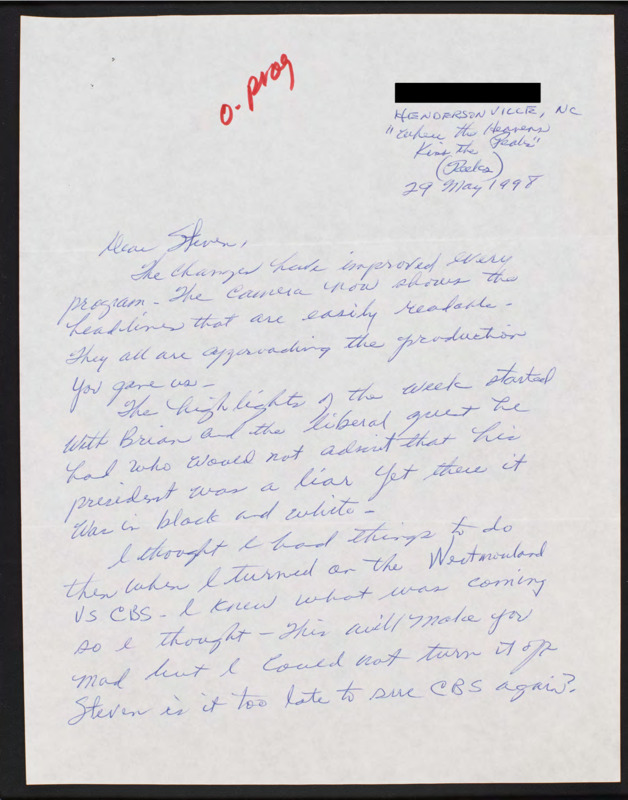 o. prog
HENDERSONVILLE, NC
"Where the Heavens
Kiss the Peaks"
(Peaks)
29 May 1998
Dear Steven,
The changes have improved every
program - The camera now shows the
headlines that are easily readable -
They all are approaching the production
you gave us -
The highlights of the week started
with Brian and the liberal guest he
had who would not admit that his
president was a liar yet there it
was in black and white -
I thought I had things to do
then when I turned on the Westmoreland
VS CBS - I knew what was coming
so I thought - This will make you
mad but I could not turn it off
Steven is it too late to sue CBS again?